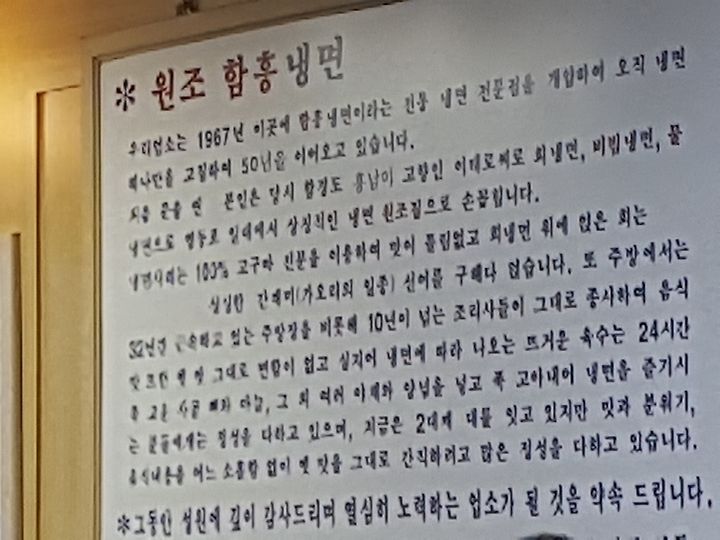 * 원조 함흥냉면
우리업소는 1967년 이곳에 함흥냉면이라는 전통 냉면 전문점을 개업하여 오직 냉면
하나만을 고집하여 50년을 이어오고 있습니다.
처음 문을 연 본인은 당시 함경도 흥남이 고향인 이대로씨로 회냉면, 비빔냉면, 물
냉면으로 영등포 일대에서 상징적인 냉면 원조집으로 손꼽힙니다.
냉면사리는 100% 고구마 전분을 이용하여 맛이 틀림없고 회냉면 위에 얹은 회는
싱싱한 간재미(가오리의 일종) 신어를 구해다 얹습니다. 또 주방에서는
32년간 근속하고 있는 주방장을 비롯해 10년이 넘는 조리사들이 그대로 종사하여 음식
맛 또한 옛 맛 그대로 변함이 없고 심지어 냉면에 따라 나오는 뜨거운 육수는 24시간
푹 고은 사골 뼈와 마늘, 그 외 여러 야채와 양념을 넣고 푹 고아내어 냉면을 즐기시
는 분들에게는 정성을 다하고 있으며, 지금은 2대째 대를 잇고 있지만 맛과 분위기,
음식내용을 어느 소홀함 없이 옛 맛을 그대로 간직하려고 많은 정성을 다하고 있습니다.
*그동안 성원에 깊이 감사드리며 열심히 노력하는 업소가 될 것을 약속 드립니다.